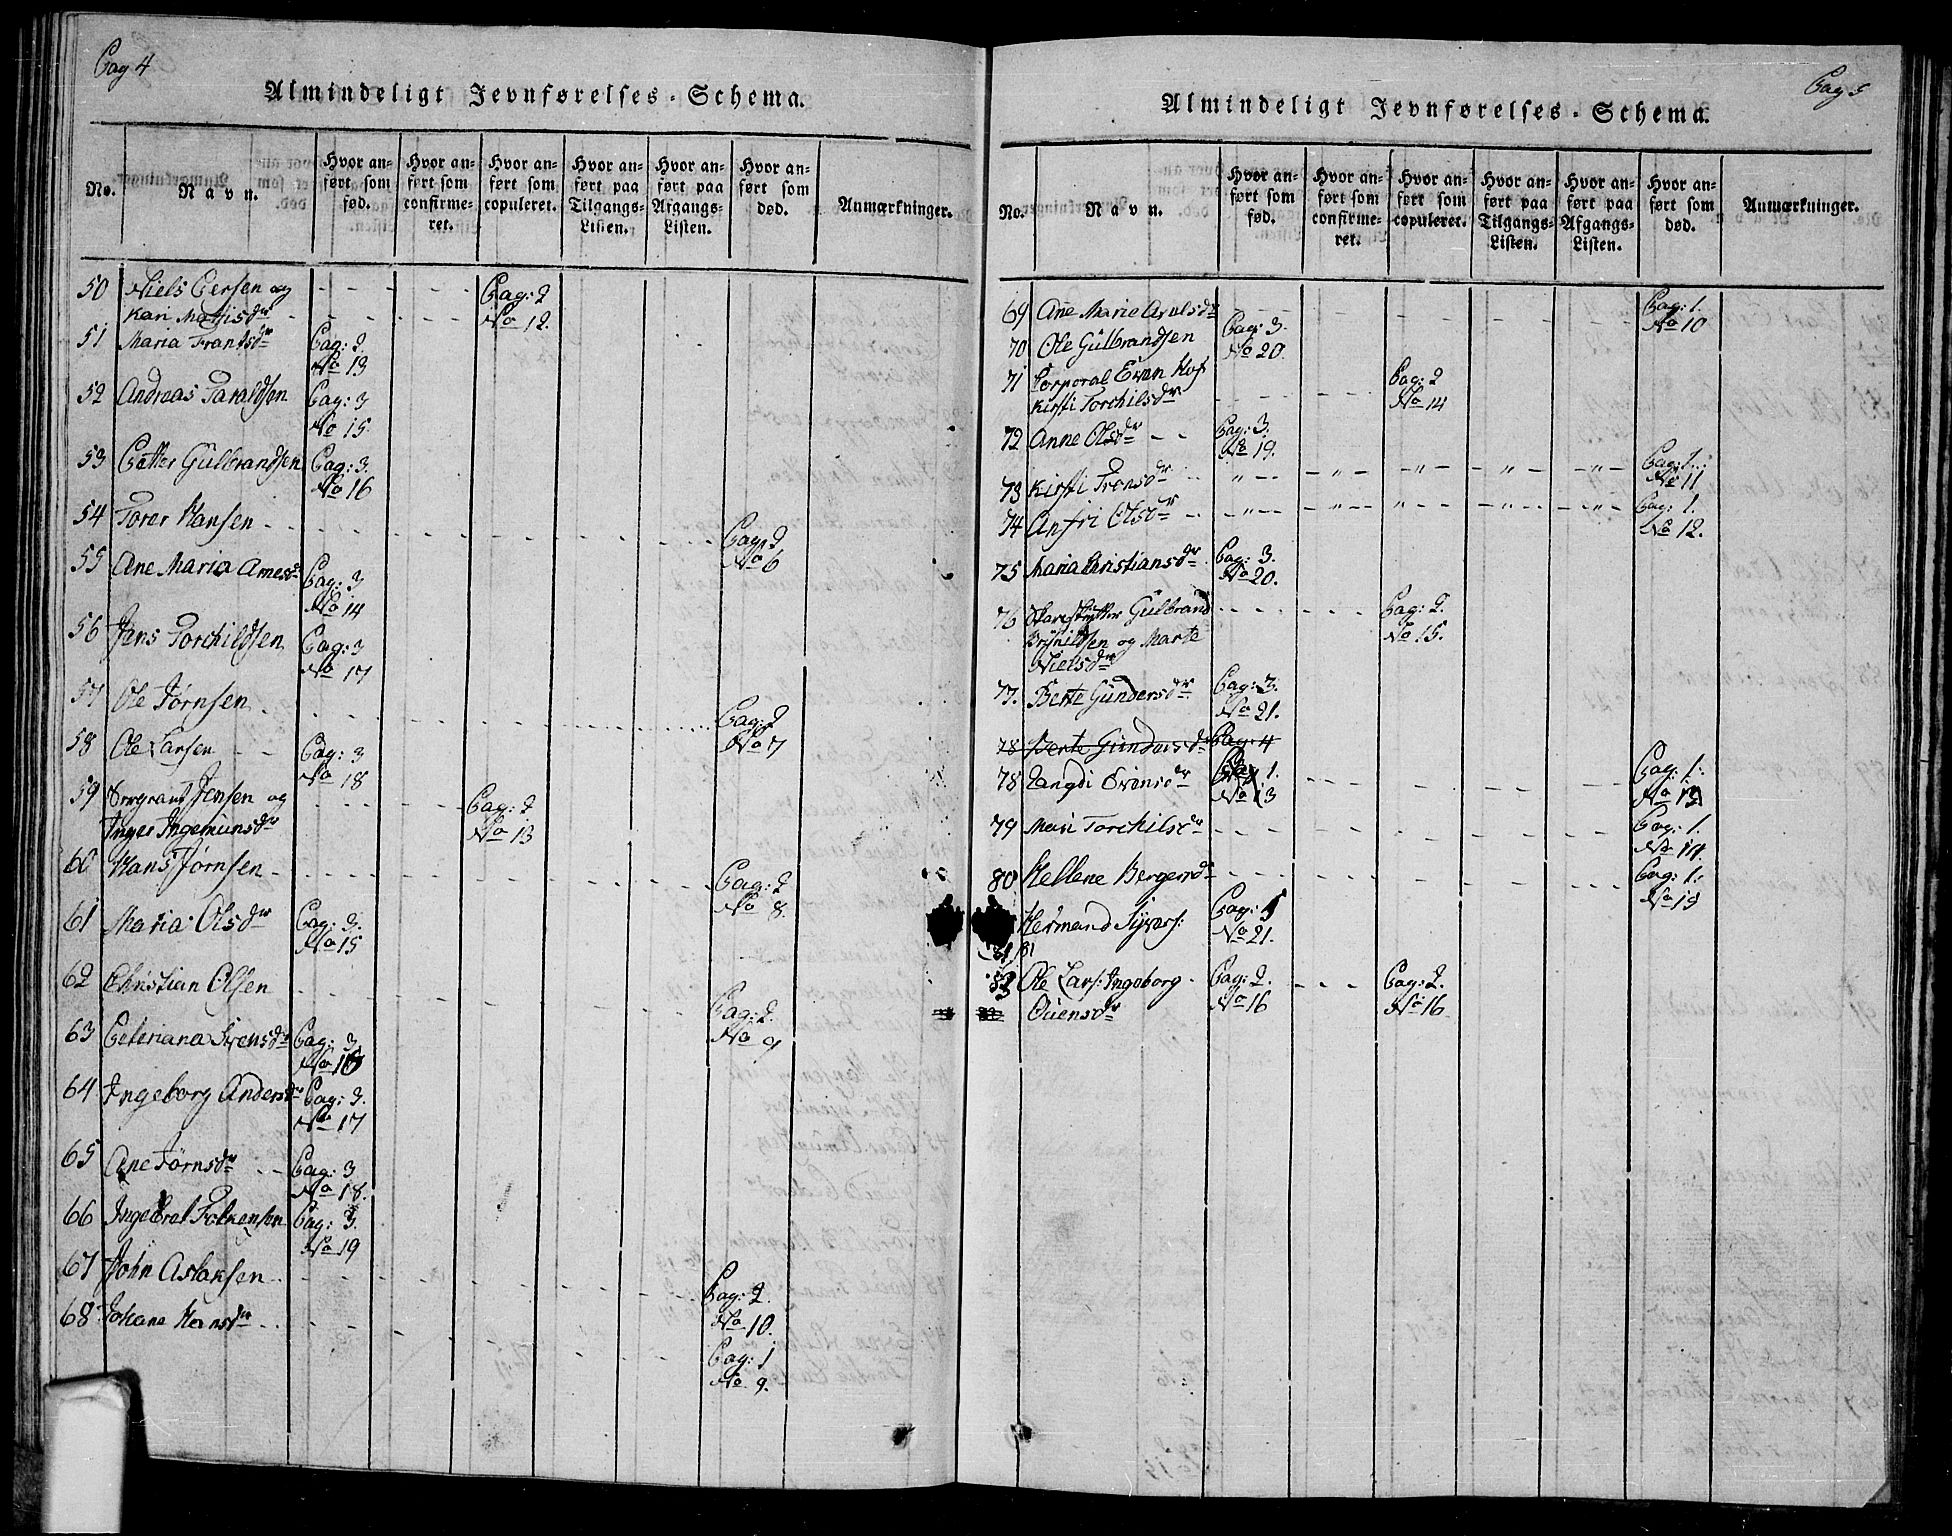 Pag 4
Almindeligt Jevnførelses-Schema.
No.
Navn.
Hvor anført som fød.
Hvor anført som confirmeret.
Hvor anført som copuleret.
Hvor anført paa Tilgangs-Listen.
Hvor anført paa Afgangs-Listen.
Hvor anført som død.
Anmærkninger.
50 Niels Persen og - - - - Pag: 2
Kari Madsdr - - - - No 12.
51 Maria Frantsdr Pag: 2.
No 13
52 Andreas Taraldsen Pag: 3
No 15.
53 Petter Gülbrandsen Pag: 3.
No 16
54 Torer Hansen - - - - Pag 2
No 6
55 Ane Maria Arnesdr Pag: 3.
No 14
56 Jens Torchildsen Pag: 3
No 17
57 Ole Jørnsen - - - - Pag: 2
No 7
58 Ole Larsen - - Pag: 3
No 18
59 Sergeant Jensen og - - - - Pag: 2
Inger Ingemunsdr No 13
60 Hans Jørnsen - - - - Pag: 2
No 8.
61 Maria Olsdr Pag: 3.
No 15
62 Christian Olsen - - - - Pag: 2.
No 9
63 Peteriana Svensdr Pag: 3.
No 16
64 Ingeborg Andersdr Pag: 3.
No 17
65 Ane Jørnsdr - - Pag: 3
No 18.
66 Ingebret Falkensen Pag: 3.
No 19
67 John Aslaksen - - - - Pag: 2.
No 10.
68 Johane Hansdr - - - - Pag: 1
No 9.
Pag 5
Almindeligt Jevnførelses-Schema.
No.
Navn.
Hvor anført som fød.
Hvor anført som confirmeret.
Hvor anført som copuleret.
Hvor anført paa Tilgangs-Listen.
Hvor anført paa Afgangs-Listen.
Hvor anført som død.
Anmærkninger.
69 Ane Marie Arnlsdr - - - - Pag: 1.
No 10
70 Ole Gülbrandsen Pag: 3.
No 20.
71 Corporal Even Hof Pag: 2
Kirsti Torchilsdr - - - - No 14
72 Anne Olsdr - - Pag: 3.
No 19.
73 Kirsti Trønsdr - " - - " - - " - - " - - " - Pag: 1.
No 11
74 Anfri Olsdr - " - - " - - " - - " - - " - Pag: 1.
No 12.
75 Maria Christiansdr Pag: 3.
No 20.
76 Gülbrand - - - - Pag: 2.
Brynildsen og Marte No 15.
Nielsdr
77. Berte Gündersdr Pag: 3.
No 21.
78 Berte Gündersdr Pag: 4
78 Langdi Evensdr Pag 1. - - - - Pag: 1.
No 13 No 13
79 Mari Torchilsdr - - - - Pag: 1.
No 14.
80 Hellene Bergersdr - - - - Pag: 1.
No 15
Hermand Syvers: Pag:
81 No 21.
Ole Lars: Ingeborg Pag: 2. - - - Pag: 2.
Ouensdr No 16 No 16